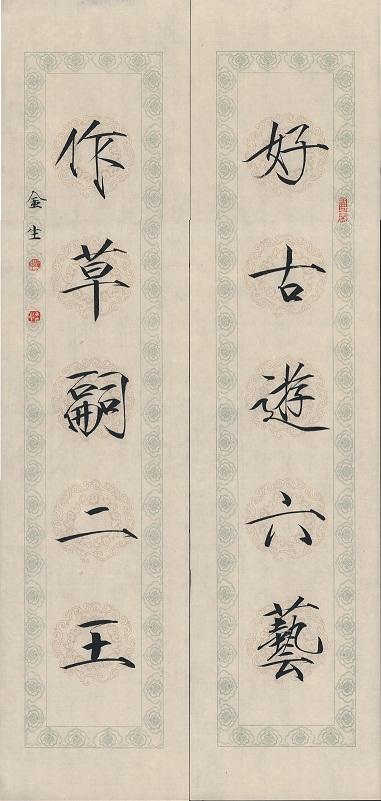 好古遊六藝
作草嗣二王
金生